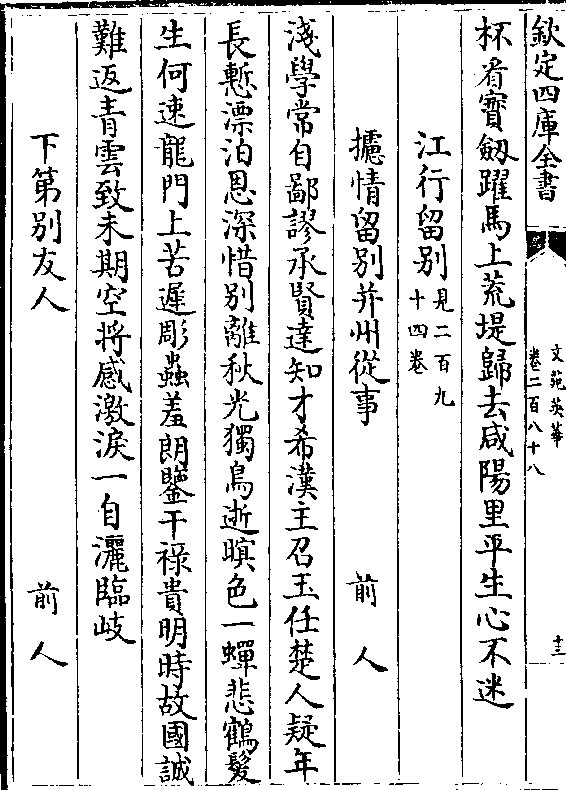 欽定四庫全書
文苑英華
卷二百八十八
十三
杯看寳劒躍馬上荒堤歸去咸陽里平生心不迷
江行留别見二百九十四卷
攄情留别并州從事 前人
淺學常自鄙謬承賢達知才希漢主召玉任楚人疑年
長慙漂泊恩深惜别離秋光獨鳥逝暝色一蟬悲鶴髮
生何速龍門上苦遲彫蟲羞朗鑒干禄貴明時故國誠
難返青雲致未期空将感激淚一自灑臨岐
下第别友人 前人